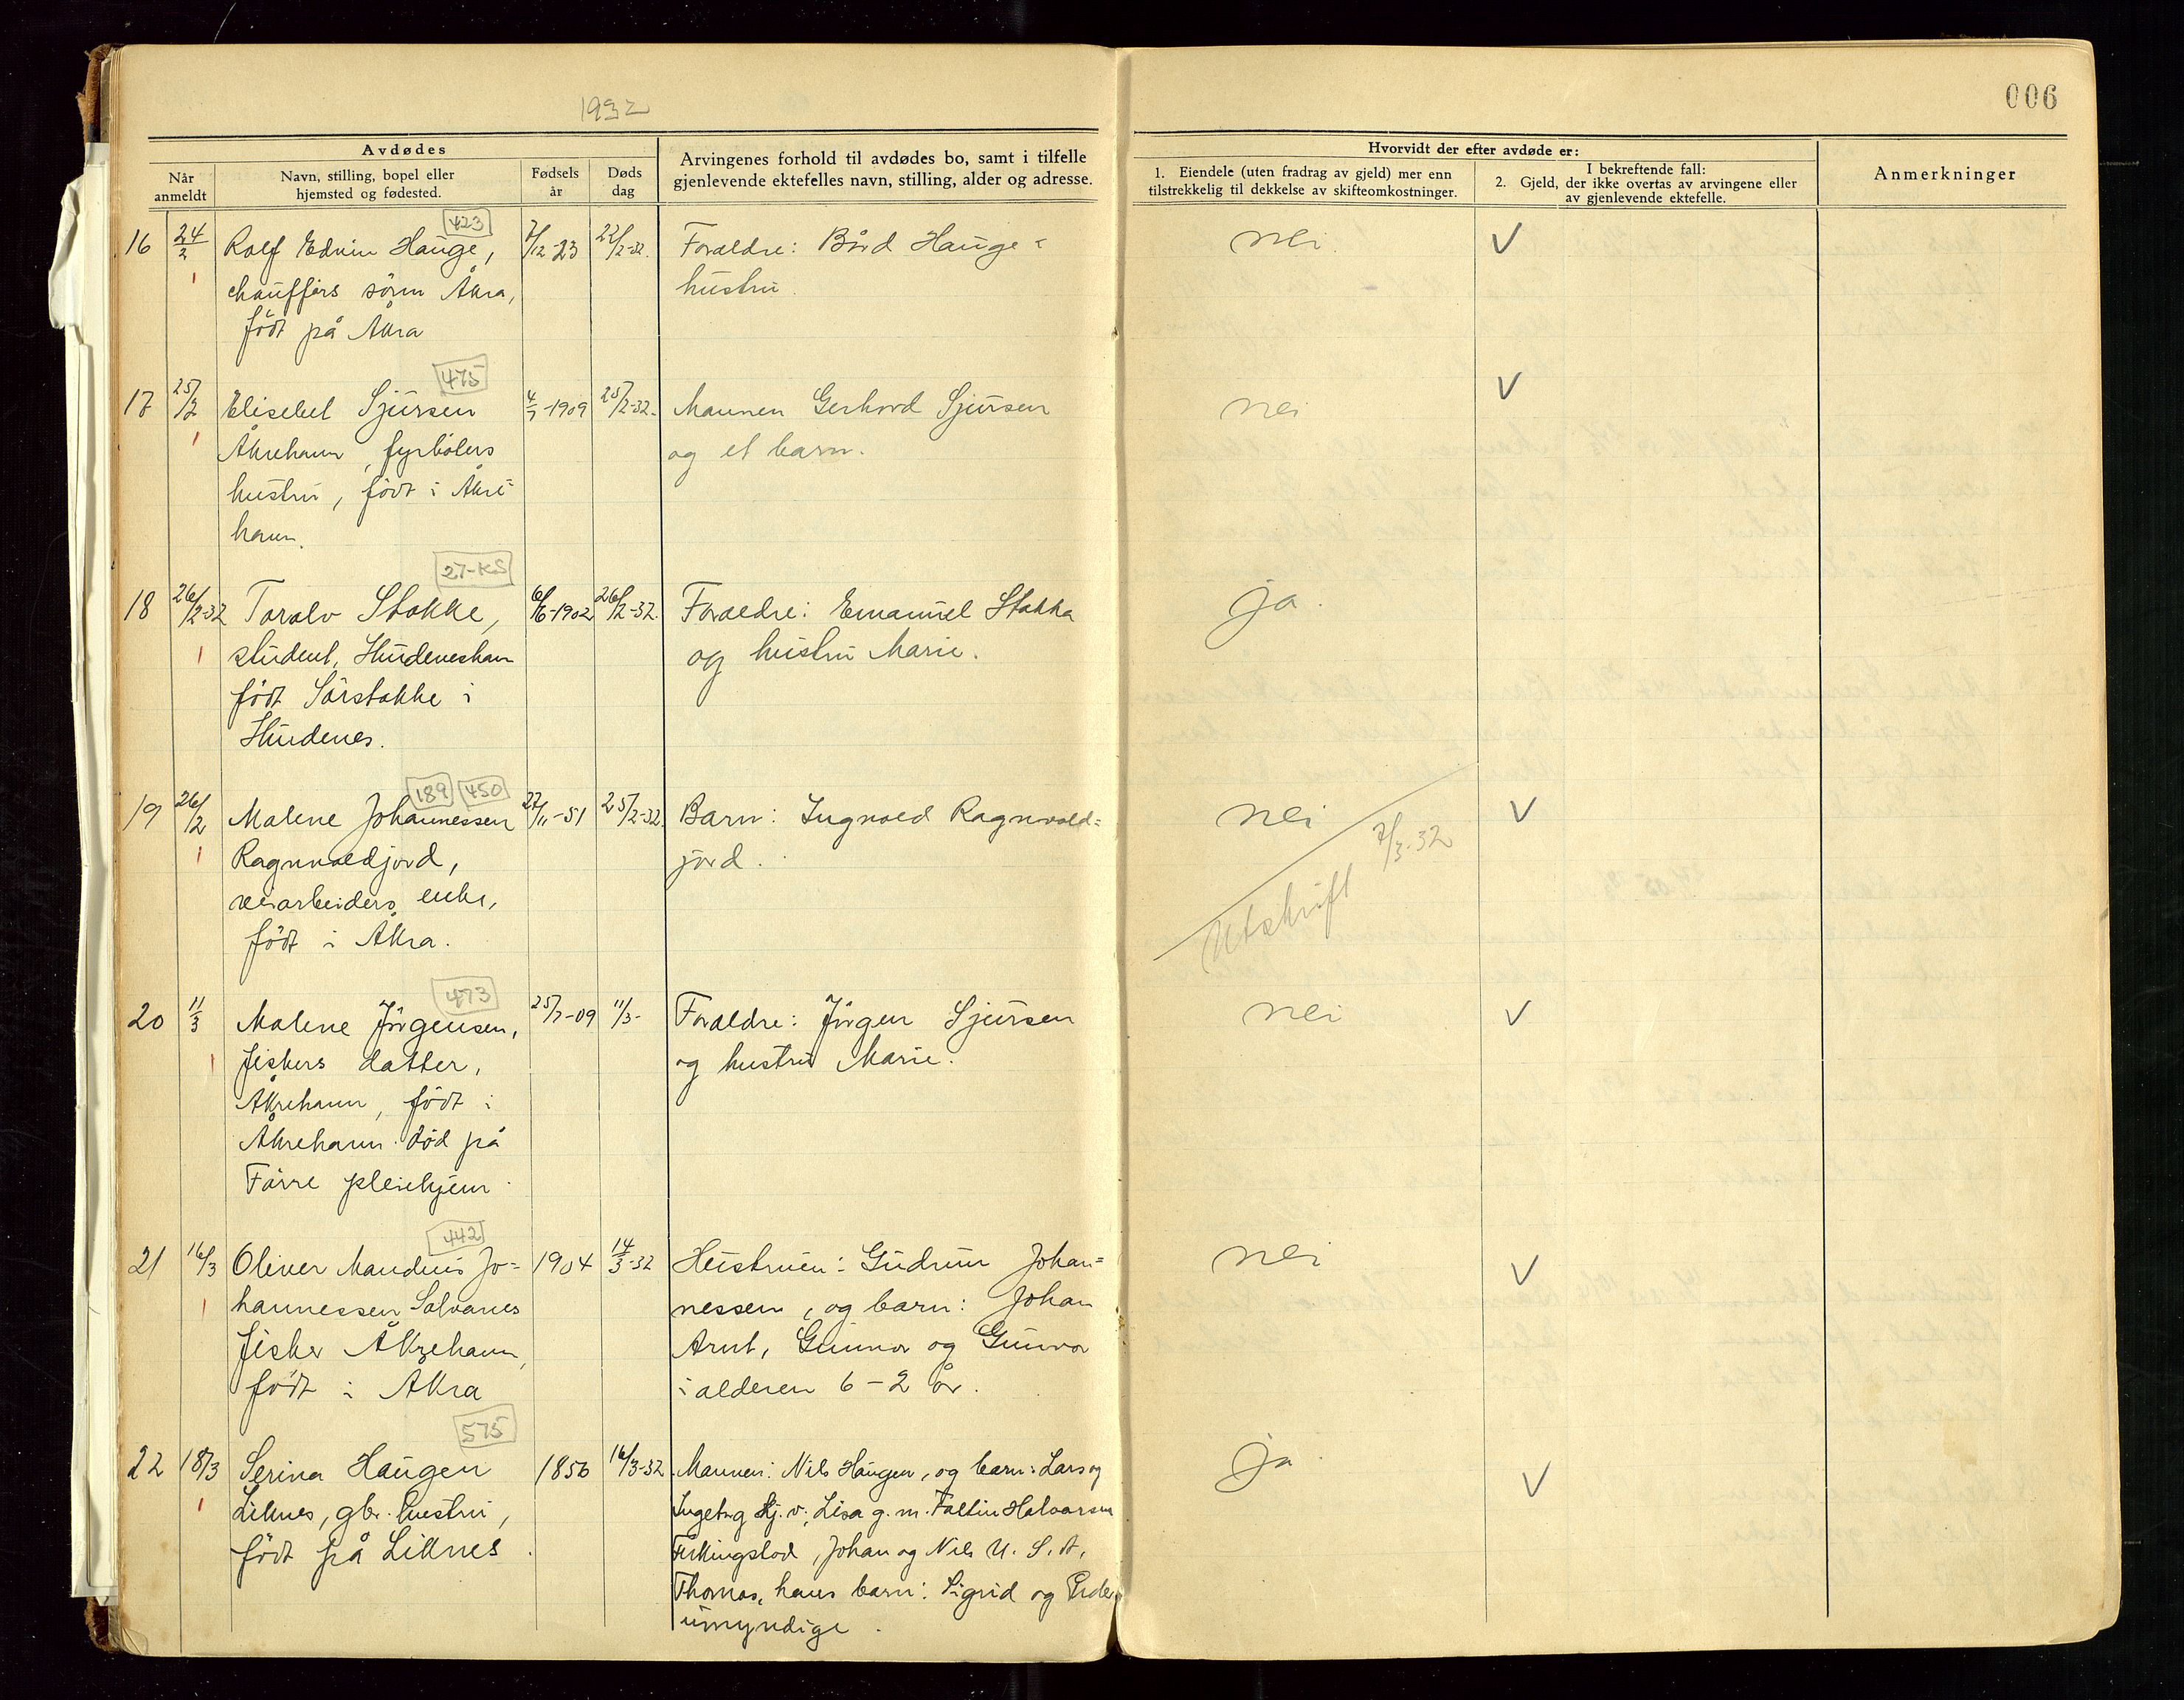 1932
006
Avdødes
Når anmeldt
Navn, stilling, bopel eller hjemsted og fødested.
Fødsels år
Døds dag
Arvingenes forhold til avdødes bo, samt i tilfelle gjenlevende ektefelles navn, stilling, alder og adresse.
Hvorvidt der efter avdøde er:
1. Eiendele (uten fradrag av gjeld) mer enn tilstrekkelig til dekkelse av skifteomkostninger.
I bekreftende fall:
2. Gjeld, der ikke overtas av arvingene eller av gjenlevende ektefelle.
Anmerkninger
423
16 24/2 Rolf Edvin Hauge, 7/12-23 22/2-32. Foreldre: Bård Hauge = nei. V
chaufförs sönn Åkra, hustru
född på Åkra
475
17 25/2 Elisebet Sjursen 4/7-1909 25/2-32. Mannen Gerhard Sjursen nei V
Åkrehamn, fyrböters og et barn.
hustru, född i Åkre=
hamn.
27-KS
18 26/2-32 Toralv Stakke, 6/6-1902 26/2-32. Foraeldre: Emanuel Stakka ja.
student, Hudenesham og hustru Marie.
född Sörstakke i
Hudenes.
189 450
19 26/2 Malene Johannessen 27/11-51 25/2-32. Barn: Ingvald Ragnvald= nei V
Ragnvaldjord, jord.
veiarbeiders enke,
född i Åkra.
Utskrift 7/3-32
473
20 11/3 Malene Jörgensen, 25/7-09 11/3- Foraldre: Jörgen Sjursen nei V
fiskers datter, og hustru Marie.
Åkrehamn, född i
Åkrehamn. död på
Förre pleiehjem
442
21 16/3 Oliver Mandius Jo= 1904 14/3-32 Hustruen: Gudrun Johan= nei V
hannessen Solvanes nessen, og barn: Johan
fisker Åkrehamn, Arnt, Gunnar og Gunvor
född i Åkra i alderen 6-2 år.
575
22 18/3 Serina Haugen 1856 16/3-32 Mannen: Nils Haugen, og barn: Lars og ja V
Liknes, gbr. hustru, Ingebrg Skj. v., Lisa g. m. Faltin Halvarsen
född på Liknes. Ferkingstad, Johan og Nils U. S. A.
Thomas, hans barn: Sigrid og
umyndige.